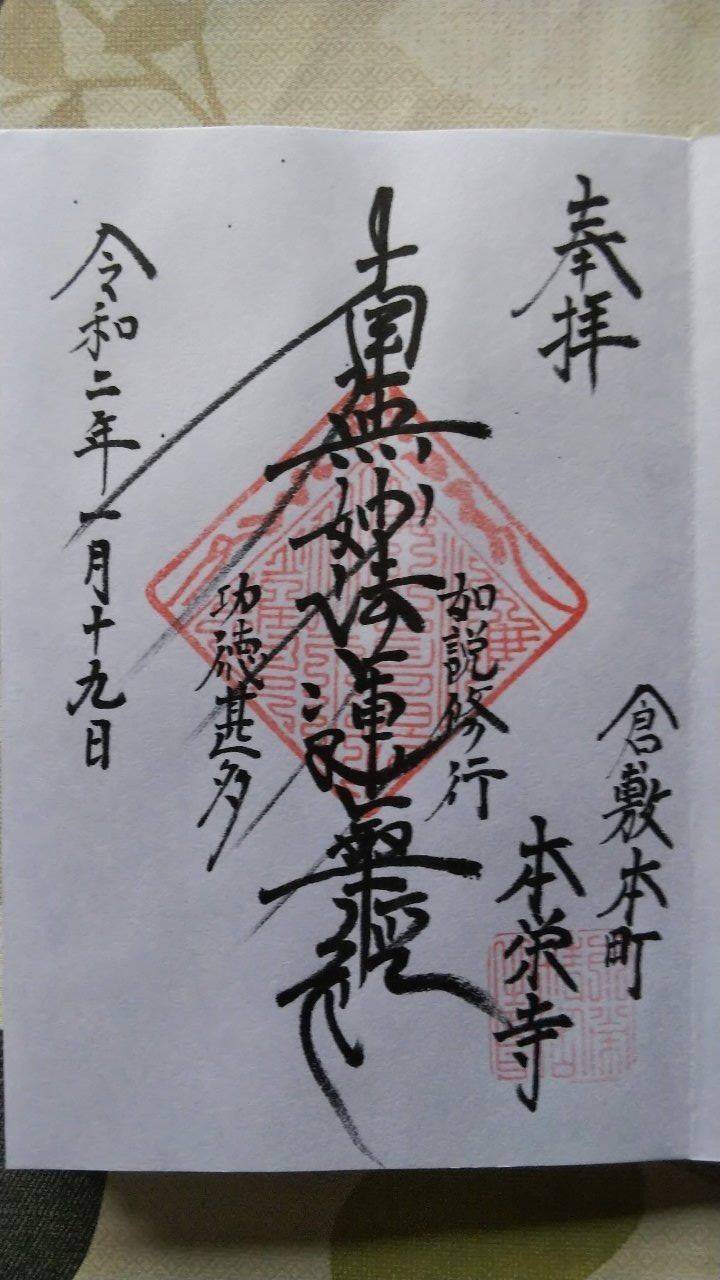 奉拝
倉敷本町
本栄寺
如説修行
南無妙法蓮華経
功徳甚多
令和二年一月十九日